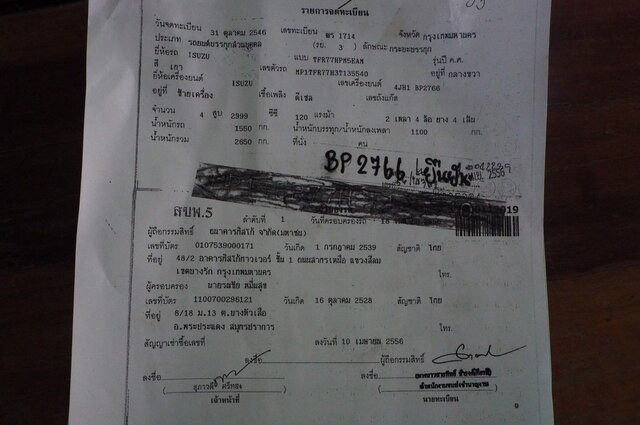 รายการจดทะเบียน
วันจดทะเบียน 31 ตุลาคม 2546 เลขทะเบียน 1714 จังหวัด กรุงเทพมหานคร
ประเภท รถยนต์บรรทุกส่วนบุคคล (รย. 3) ลักษณะ กระบะบรรทุก
ยี่ห้อรถ ISUZU แบบ TFR77HPM5EAM รุ่นปี ค.ศ.
สี เทา เลขตัวรถ MP1TFR77H3T135540 อยู่ที่ กลางขวา
ยี่ห้อเครื่องยนต์ ISUZU เลขเครื่องยนต์ 4JH1 BP2766
อยู่ที่ ซ้ายเครื่อง เชื้อเพลิง ดีเซล เลขถังแก๊ส
จำนวน 4 สูบ 2999 ซีซี 120 แรงม้า 2 เพลา 4 ล้อ ยาง 4 เส้น
น้ำหนักรถ 1550 กก. น้ำหนักบรรทุก/น้ำหนักลงเพลา 1100 กก.
น้ำหนักรวม 2650 กก. ที่นั่ง คน
BP2766
สขพ.5
ลำดับที่ 1 วันที่ครอบครองรถ
ผู้ถือกรรมสิทธิ์ ธนาคารทิสโก้ จำกัด(มหาชน)
เลขที่บัตร 0107539000171 วันเกิด 1 กรกฎาคม 2539 สัญชาติ ไทย
ที่อยู่ 48/2 อาคารทิสโก้ทาวเวอร์ ชั้น 1 ถนนสาทรเหนือ แขวงสีลม
เขตบางรัก กรุงเทพมหานคร โทร.
ผู้ครอบครอง
เลขที่บัตร 1100700296121 วันเกิด 16 ตุลาคม 2528 สัญชาติ ไทย
ที่อยู่ 8/18 ม.13 ต.บางหัวเสือ
อ.พระประแดง สมุทรปราการ โทร.
สัญญาเช่าซื้อเลขที่ ลงวันที่ 10 เมษายน 2556
ลงชื่อ ผู้ถือกรรมสิทธิ์
ลงชื่อ ลงชื่อ
เจ้าหน้าที่ นายทะเบียน